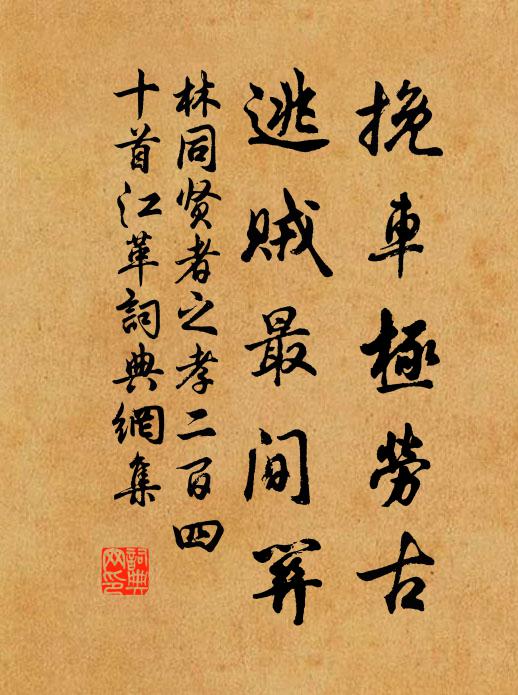 挽車極勞古
逃賊最間關
林同賢者之孝二百四
十首江革詞典網集
詞典網印